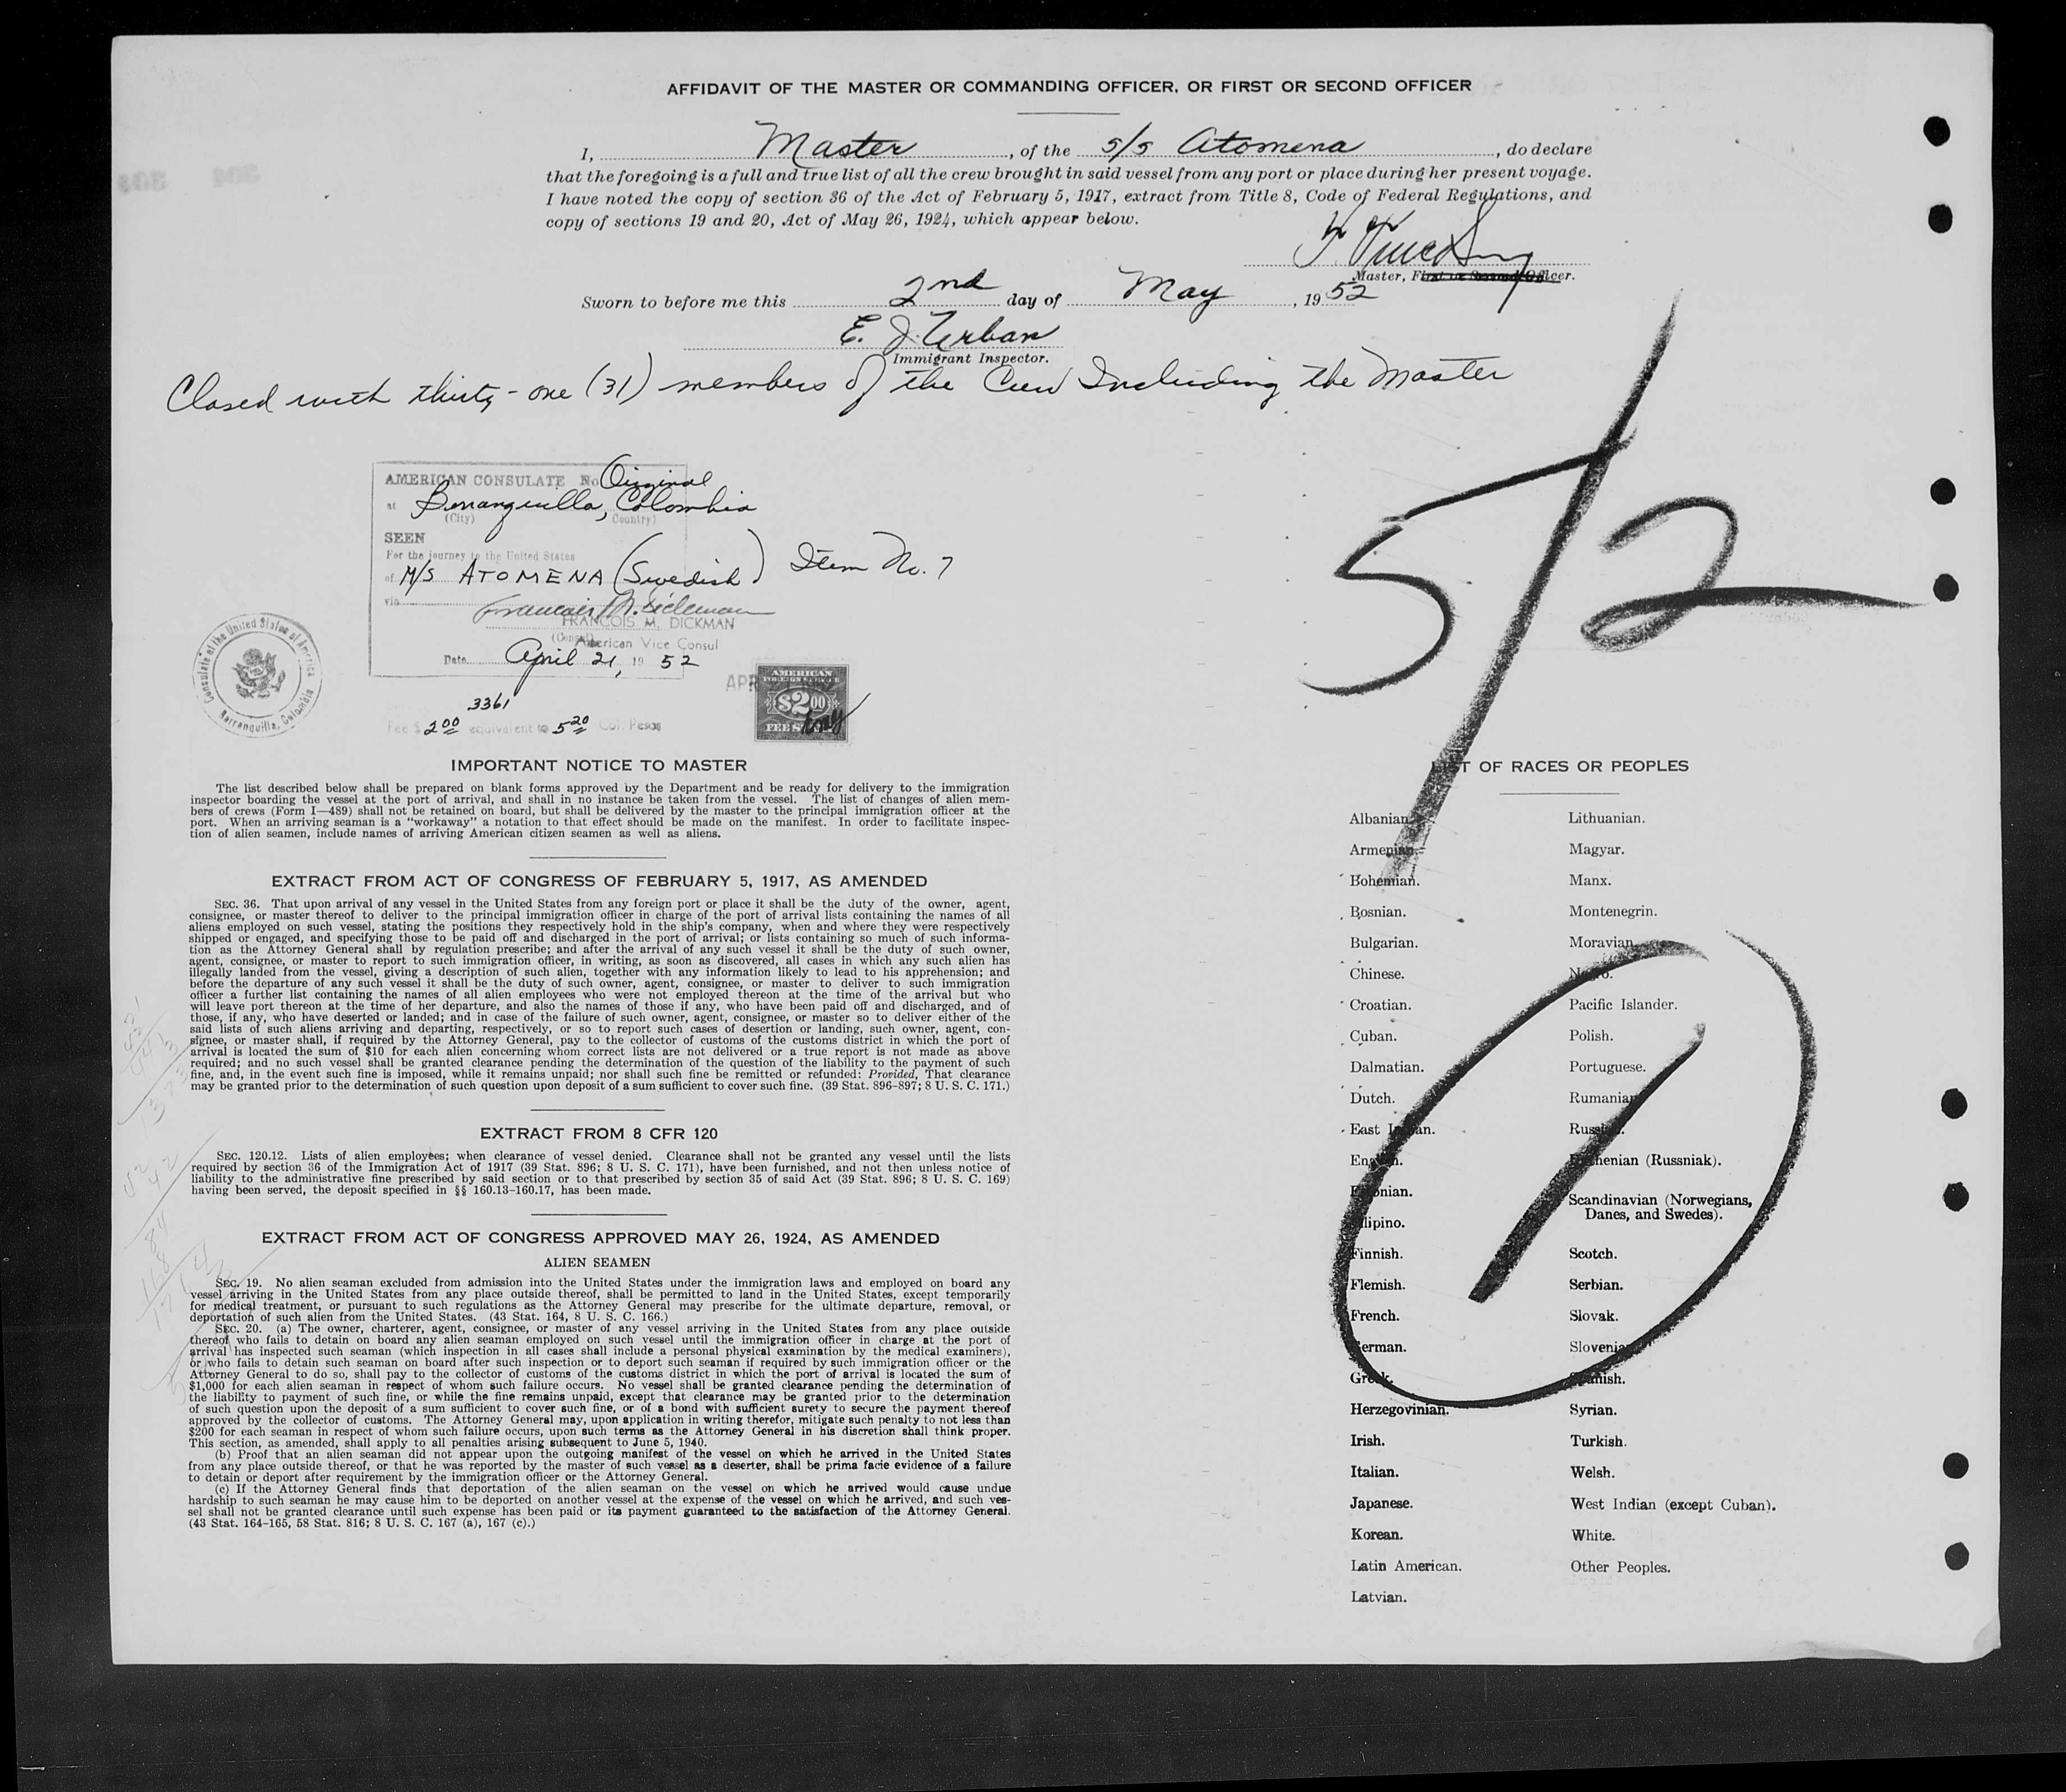 AFFIDAVIT OF THE MASTER OR COMMANDING OFFICER, OR FIRST OR SECOND OFFICER
I, Master, of the s/s Atomena, do declare
that the foregoing is a full and true list of all the crew brought in said vessel from any port or place during her present voyage.
I have noted the copy of section 36 of the Act of February 5, 1917, extract from Title 8, Code of Federal Regulations, and
copy of sections 19 and 20, Act of May 26, 1924, which appear below.
Master, First or Second Officer.
Sworn to before me this 2nd day of May, 1952
E. J. Urban
Immigrant Inspector.
Closed with thirty-one (31) members of the Crew Including the Master
AMERICAN CONSULATE No Original
at Barranquilla, Colombia
(City) Country)
SEEN
For the journey to the United States
of M/S ATOMENA (Swedish) Item No. 7
via
FRANCOIS M. DICKMAN
(Consul) American Vice Consul
Date April 21, 1952
Consulate of the United States of America
Barranquilla, Colombia
APR
AMERICAN
FOREIGN SERVICE
$2.00
FEE STAMP
3361
Fee $ 2.00 equivalent to 5.20 Col. Pesos
5/2
1
IMPORTANT NOTICE TO MASTER
The list described below shall be prepared on blank forms approved by the Department and be ready for delivery to the immigration
inspector boarding the vessel at the port of arrival, and shall in no instance be taken from the vessel. The list of changes of alien mem-
bers of crews (Form I—489) shall not be retained on board, but shall be delivered by the master to the principal immigration officer at the
port. When an arriving seaman is a "workaway" a notation to that effect should be made on the manifest. In order to facilitate inspec-
tion of alien seamen, include names of arriving American citizen seamen as well as aliens.
EXTRACT FROM ACT OF CONGRESS OF FEBRUARY 5, 1917, AS AMENDED
SEC. 36. That upon arrival of any vessel in the United States from any foreign port or place it shall be the duty of the owner, agent,
consignee, or master thereof to deliver to the principal immigration officer in charge of the port of arrival lists containing the names of all
aliens employed on such vessel, stating the positions they respectively hold in the ship's company, when and where they were respectively
shipped or engaged, and specifying those to be paid off and discharged in the port of arrival; or lists containing so much of such informa-
tion as the Attorney General shall by regulation prescribe; and after the arrival of any such vessel it shall be the duty of such owner,
agent, consignee, or master to report to such immigration officer, in writing, as soon as discovered, all cases in which any such alien has
illegally landed from the vessel, giving a description of such alien, together with any information likely to lead to his apprehension; and
before the departure of any such vessel it shall be the duty of such owner, agent, consignee, or master to deliver to such immigration
officer a further list containing the names of all alien employees who were not employed thereon at the time of the arrival but who
will leave port thereon at the time of her departure, and also the names of those if any, who have been paid off and discharged, and of
those, if any, who have deserted or landed; and in case of the failure of such owner, agent, consignee, or master so to deliver either of the
said lists of such aliens arriving and departing, respectively, or so to report such cases of desertion or landing, such owner, agent, con-
signee, or master shall, if required by the Attorney General, pay to the collector of customs of the customs district in which the port of
arrival is located the sum of $10 for each alien concerning whom correct lists are not delivered or a true report is not made as above
required; and no such vessel shall be granted clearance pending the determination of the question of the liability to the payment of such
fine, and, in the event such fine is imposed, while it remains unpaid; nor shall such fine be remitted or refunded: Provided, That clearance
may be granted prior to the determination of such question upon deposit of a sum sufficient to cover such fine. (39 Stat. 896–897; 8 U. S. C. 171.)
EXTRACT FROM 8 CFR 120
SEC. 120.12. Lists of alien employees; when clearance of vessel denied. Clearance shall not be granted any vessel until the lists
required by section 36 of the Immigration Act of 1917 (39 Stat. 896; 8 U. S. C. 171), have been furnished, and not then unless notice of
liability to the administrative fine prescribed by said section or to that prescribed by section 35 of said Act (39 Stat. 896; 8 U. S. C. 169)
having been served, the deposit specified in §§ 160.13–160.17, has been made.
EXTRACT FROM ACT OF CONGRESS APPROVED MAY 26, 1924, AS AMENDED
ALIEN SEAMEN
SEC. 19. No alien seaman excluded from admission into the United States under the immigration laws and employed on board any
vessel arriving in the United States from any place outside thereof, shall be permitted to land in the United States, except temporarily
for medical treatment, or pursuant to such regulations as the Attorney General may prescribe for the ultimate departure, removal, or
deportation of such alien from the United States. (43 Stat. 164, 8 U. S. C. 166.)
SEC. 20. (a) The owner, charterer, agent, consignee, or master of any vessel arriving in the United States from any place outside
thereof who fails to detain on board any alien seaman employed on such vessel until the immigration officer in charge at the port of
arrival has inspected such seaman (which inspection in all cases shall include a personal physical examination by the medical examiners),
or who fails to detain such seaman on board after such inspection or to deport such seaman if required by such immigration officer or the
Attorney General to do so, shall pay to the collector of customs of the customs district in which the port of arrival is located the sum of
$1,000 for each alien seaman in respect of whom such failure occurs. No vessel shall be granted clearance pending the determination of
the liability to payment of such fine, or while the fine remains unpaid, except that clearance may be granted prior to the determination
of such question upon the deposit of a sum sufficient to cover such fine, or of a bond with sufficient surety to secure the payment thereof
approved by the collector of customs. The Attorney General may, upon application in writing therefor, mitigate such penalty to not less than
$200 for each seaman in respect of whom such failure occurs, upon such terms as the Attorney General in his discretion shall think proper.
This section, as amended, shall apply to all penalties arising subsequent to June 5, 1940.
(b) Proof that an alien seaman did not appear upon the outgoing manifest of the vessel on which he arrived in the United States
from any place outside thereof, or that he was reported by the master of such vessel as a deserter, shall be prima facie evidence of a failure
to detain or deport after requirement by the immigration officer or the Attorney General.
(c) If the Attorney General finds that deportation of the alien seaman on the vessel on which he arrived would cause undue
hardship to such seaman he may cause him to be deported on another vessel at the expense of the vessel on which he arrived, and such ves-
sel shall not be granted clearance until such expense has been paid or its payment guaranteed to the satisfaction of the Attorney General.
(43 Stat. 164–165, 58 Stat. 816; 8 U. S. C. 167 (a), 167 (c).)
LIST OF RACES OR PEOPLES
Albanian.
Armenian.
Bohemian.
Bosnian.
Bulgarian.
Chinese.
Croatian.
Cuban.
Dalmatian.
Dutch.
East Indian.
English.
Estonian.
Filipino.
Finnish.
Flemish.
French.
German.
Greek.
Herzegovinian.
Irish.
Italian.
Japanese.
Korean.
Latin American.
Latvian.
Lithuanian.
Magyar.
Manx.
Montenegrin.
Moravian.
Negro.
Pacific Islander.
Polish.
Portuguese.
Rumanian.
Russian.
Ruthenian (Russniak).
Scandinavian (Norwegians,
Danes, and Swedes).
Scotch.
Serbian.
Slovak.
Slovenian.
Spanish.
Syrian.
Turkish.
Welsh.
West Indian (except Cuban).
White.
Other Peoples.